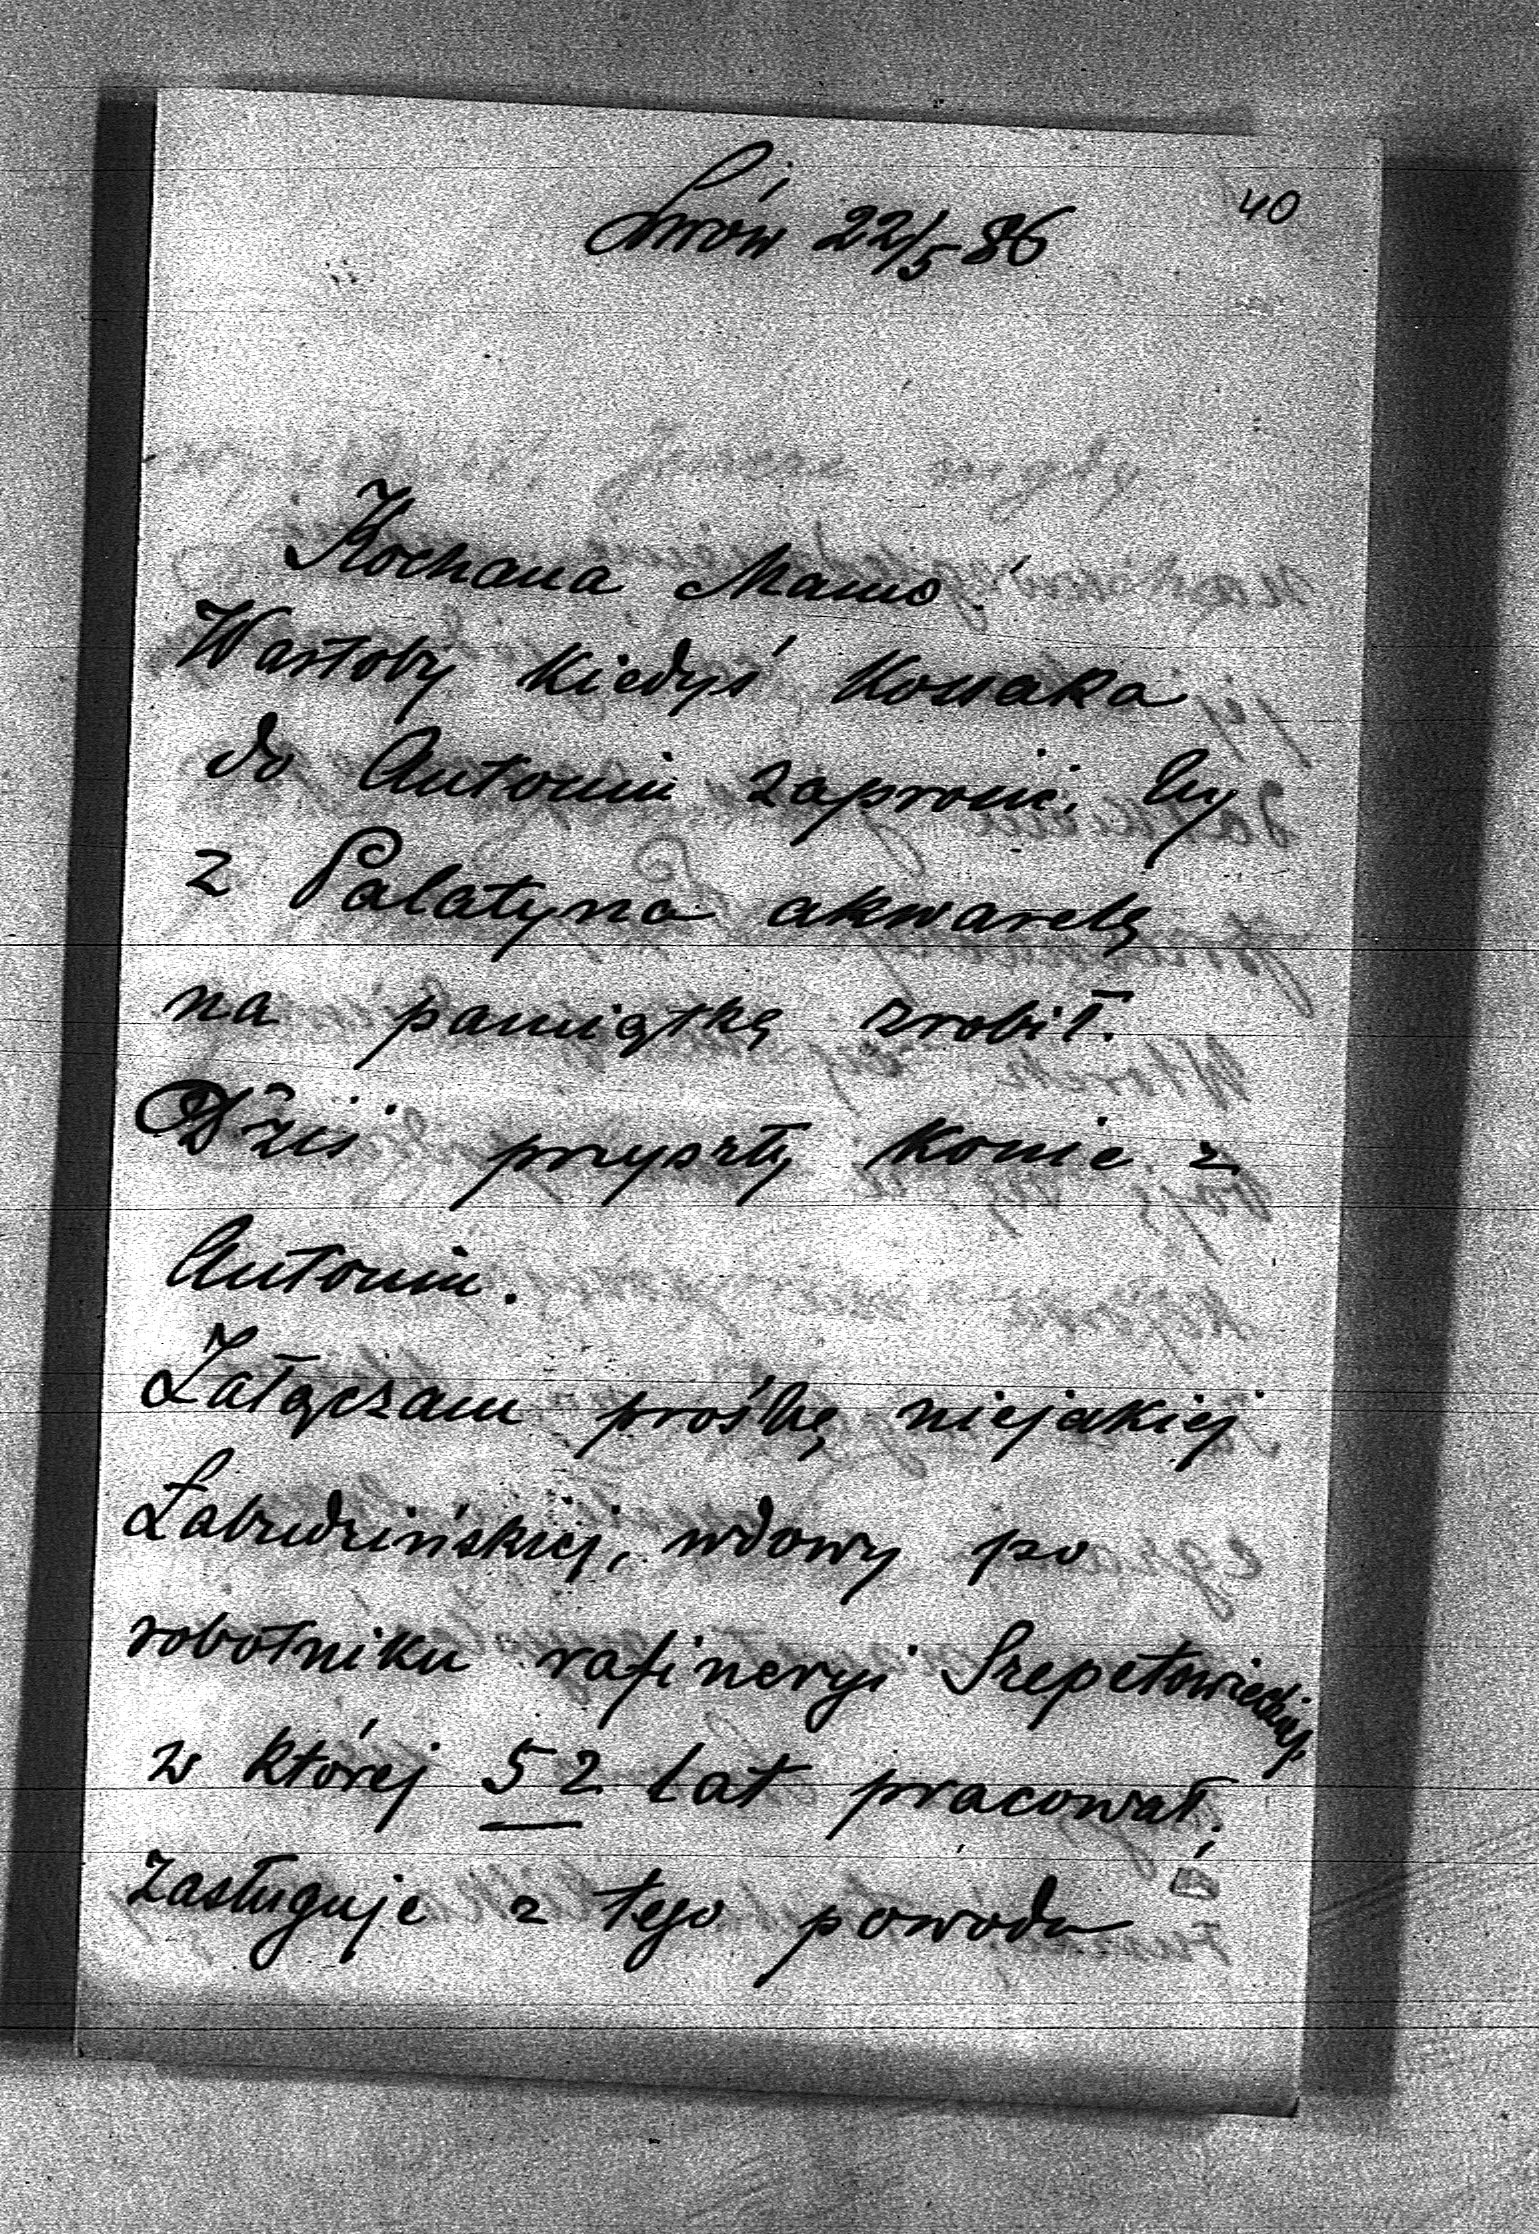 40
Lwów 22/5 86
Kochana Mamo!
Wartoby kiedyś Kossaka
do Antonin zaprosić, by
z Palatyna akwarelę
na pamiątkę zrobił.
Dziś przyszły konie z
Antonin.
Załączam prośbę niejakiej
Zabrudzińskiej, wdowy po
robotniku rafineryi Szepetowieckiej,
w której 52 lat pracował,
zasługuje z tego powodu